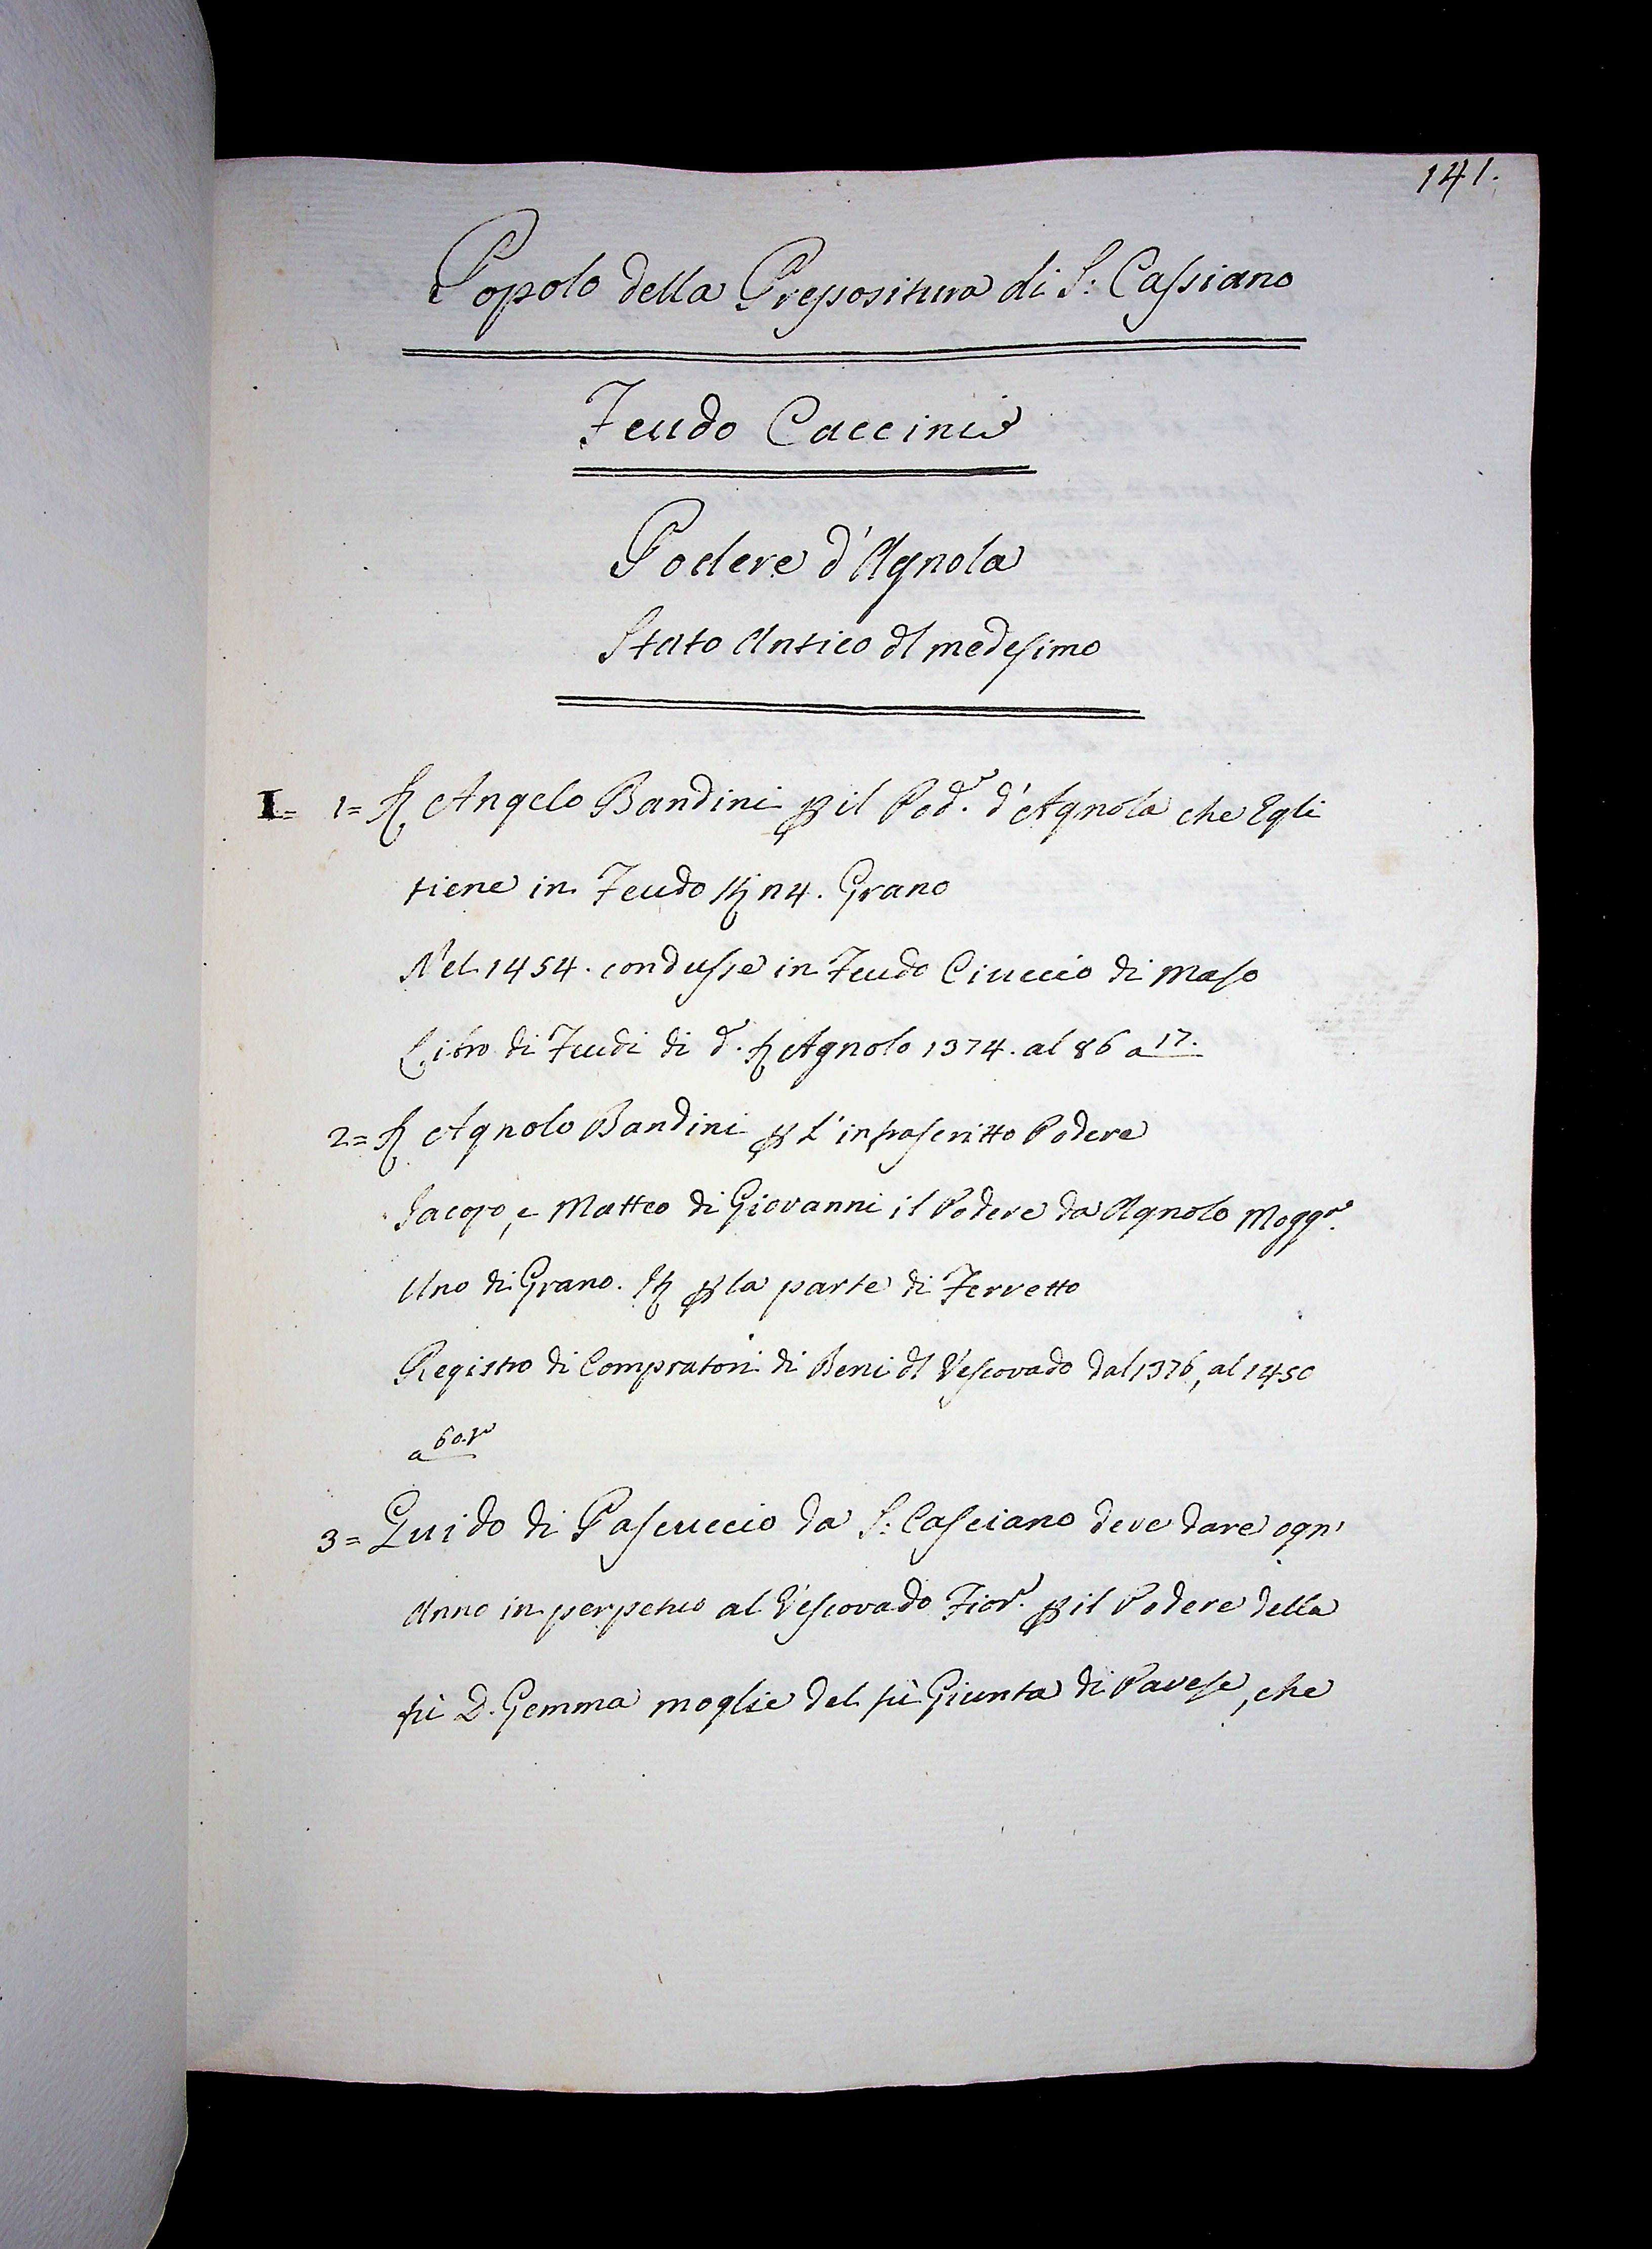 141.
Popolo della Prepositura di S: Cassiano
Feudo Caccini
Podere d'Agnola
Stato Antico dl medesimo
I= 1= Sr Angelo Bandini p il Podr. d'Agnola che Egli
tiene in Feudo St n 4. Grano
Nel 1454. condusse in Feudo Ciuccio di Maso
Libro di Feudi di dr. Sr Agnolo 1374. al 86 a 17.
2= Sr Agnolo Bandini p l'infrascritto Podere
Jacopo, e Matteo di Giovanni il Podere da Agnolo Moggo.
Uno di Grano. St p la parte di Ferretto
Registro di Compratori di Beni dl Vescovado dal 1376, al 1450
a 60.
3= Guido di Pascuccio da S: Casciano deve dare ogn'
Anno in perpetuo al Vescovado Fior. p il Podere della
fù D. Gemma moglie del fù Giunta di Pavese, che